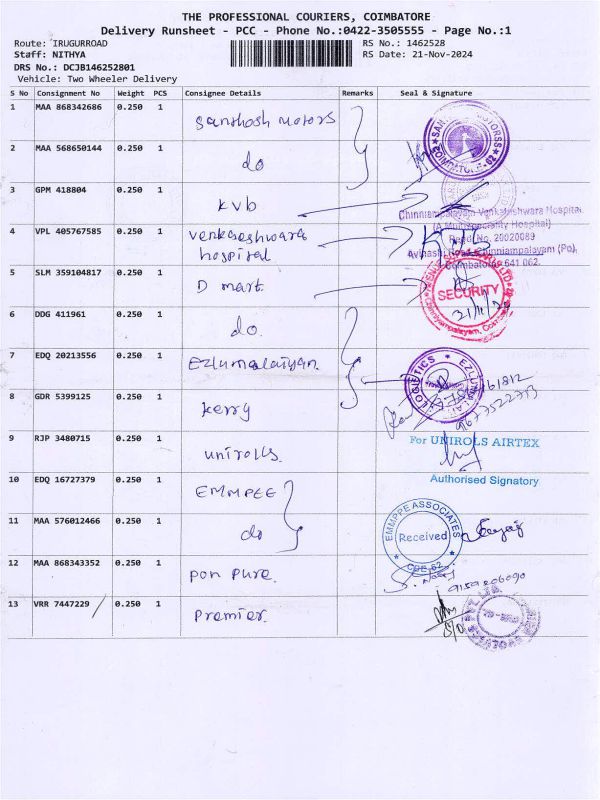 THE PROFESSIONAL COURIERS, COIMBATORE
Delivery Runsheet - PCC - Phone No.:0422-3505555 - Page No.:1
Route: IRUGURROAD
RS No.: 1462528
Staff: NITHYA
RS Date: 21-Nov-2024
DRS No.: DCJB146252801
Vehicle: Two Wheeler Delivery
S No Consignment No Weight PCS Consignee Details Remarks Seal & Signature
1 MAA 868342686 0.250 1 Santhosh Motors
2 MAA 568650144 0.250 1 do
3 GPM 418804 0.250 1 kvb
Chinniampalayam Venkateshwara Hospital
(A Multispeciality Hospital)
4 VPL 405767585 0.250 1 Venkateshwara
hospital
Regd No. 20020089
Avinashi Road, Chinniampalayam (Po),
Coimbatore - 641 062.
5 SLM 359104817 0.250 1 D mart.
SECURITY
6 DDG 411961 0.250 1 do.
7 EDQ 20213556 0.250 1 Ezhumalaiyan.
LOGISTICS
8 GDR 5399125 0.250 1 kerry
9677522773
9 RJP 3480715 0.250 1 unirolls
For UNIROLS AIRTEX
Authorised Signatory
10 EDQ 16727379 0.250 1 EMMPEE
11 MAA 576012466 0.250 1 do
EMMPPE ASSOCIATES
Received
CBE-62
12 MAA 868343352 0.250 1 pon pure.
9159206090
13 VRR 7447229 0.250 1 Premier.